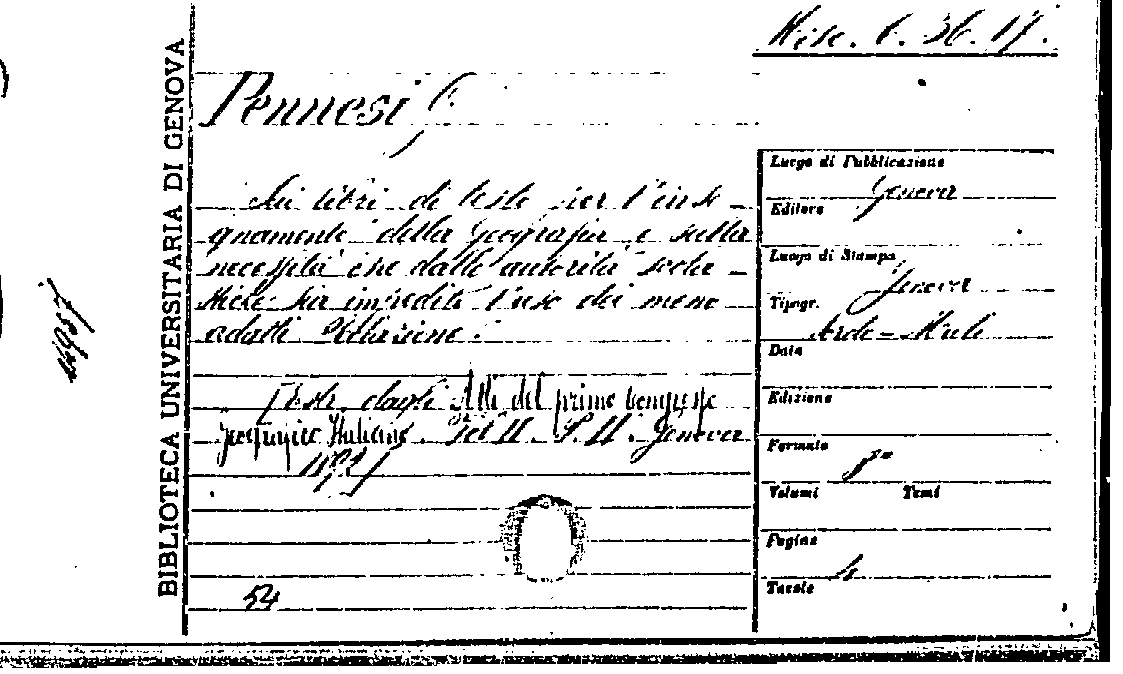 Misc. C. 36. 17.
BIBLIOTECA UNIVERSITARIA DI GENOVA
Pennesi G.
Sui libri di testo per l'inse-
gnamento della Geografia e sulla
necessità che dalle autorità scola-
stiche sia impedito l'uso dei meno
adatti. Relazione.
[Estr. dagli Atti del primo Congresso
geografico Italiano. Vol II. P. II. Genova
54
Luogo di Pubblicazione
Genova
Editore
Luogo di Stampa
Genova
Tipogr.
Sordo-Muti
Data
Edizione
Formato
8°
Volumi Tomi
Pagine
Tavole